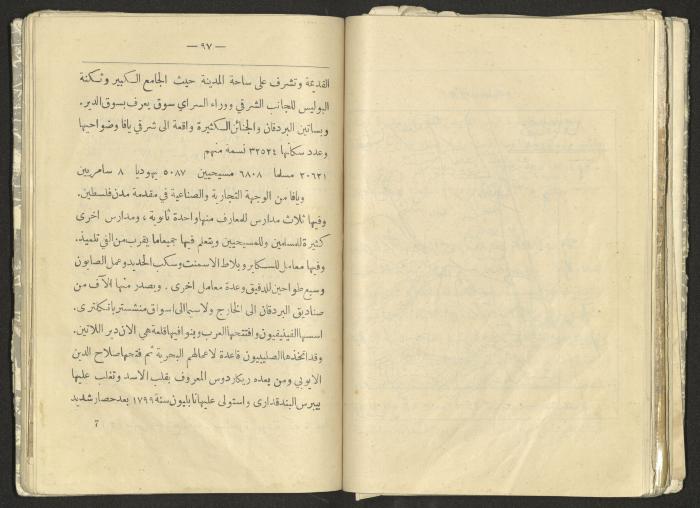 — ٩٧ —
القديمة وتشرف على ساحة المدينة حيث الجامع الكبير وثكنة
البوليس للجانب الشرقي ووراء السراي سوق يعرف بسوق الدير.
وبساتين البردقان والجنائن الكثيرة واقعة الى شرقي يافا وضواحيها
وعدد سكانها ٣٢٥٢٤ نسمة منهم
٢٠٦٢١ مسلما ٦٨٠٨ مسيحيين ٥٠٨٧ يهوديا ٨ سامريين
ويافا من الوجهة التجارية والصناعية في مقدمة مدن فلسطين.
وفيها ثلاث مدارس للمعارف منها واحدة ثانوية، ومدارس اخرى
كثيرة للمسلمين وللمسيحيين ويتعلم فيها جميعا ما يقرب من الفي تلميذ.
وفيها معامل للسكاير وبلاط الاسمنت وسكب الحديد وعمل الصابون
وسبع طواحين للدقيق وعدة معامل اخرى. ويصدر منها الآف من
صناديق البردقان الى الخارج ولا سيما الى اسواق منشستر بانكلترى.
اسسها الفينيقيون وافتتحها العرب وبنوا فيها قلعة هي الان دير اللاتين.
وقد اتخذها الصليبيون قاعدة لاعمالهم البحرية ثم فتحها صلاح الدين
الايوبي ومن بعده ريكاردوس المعروف بقلب الاسد وتغلب عليها
بيبرس البندقداري واستولى عليها نابليون سنة ١٧٩٩ بعد حصار شديد
٦